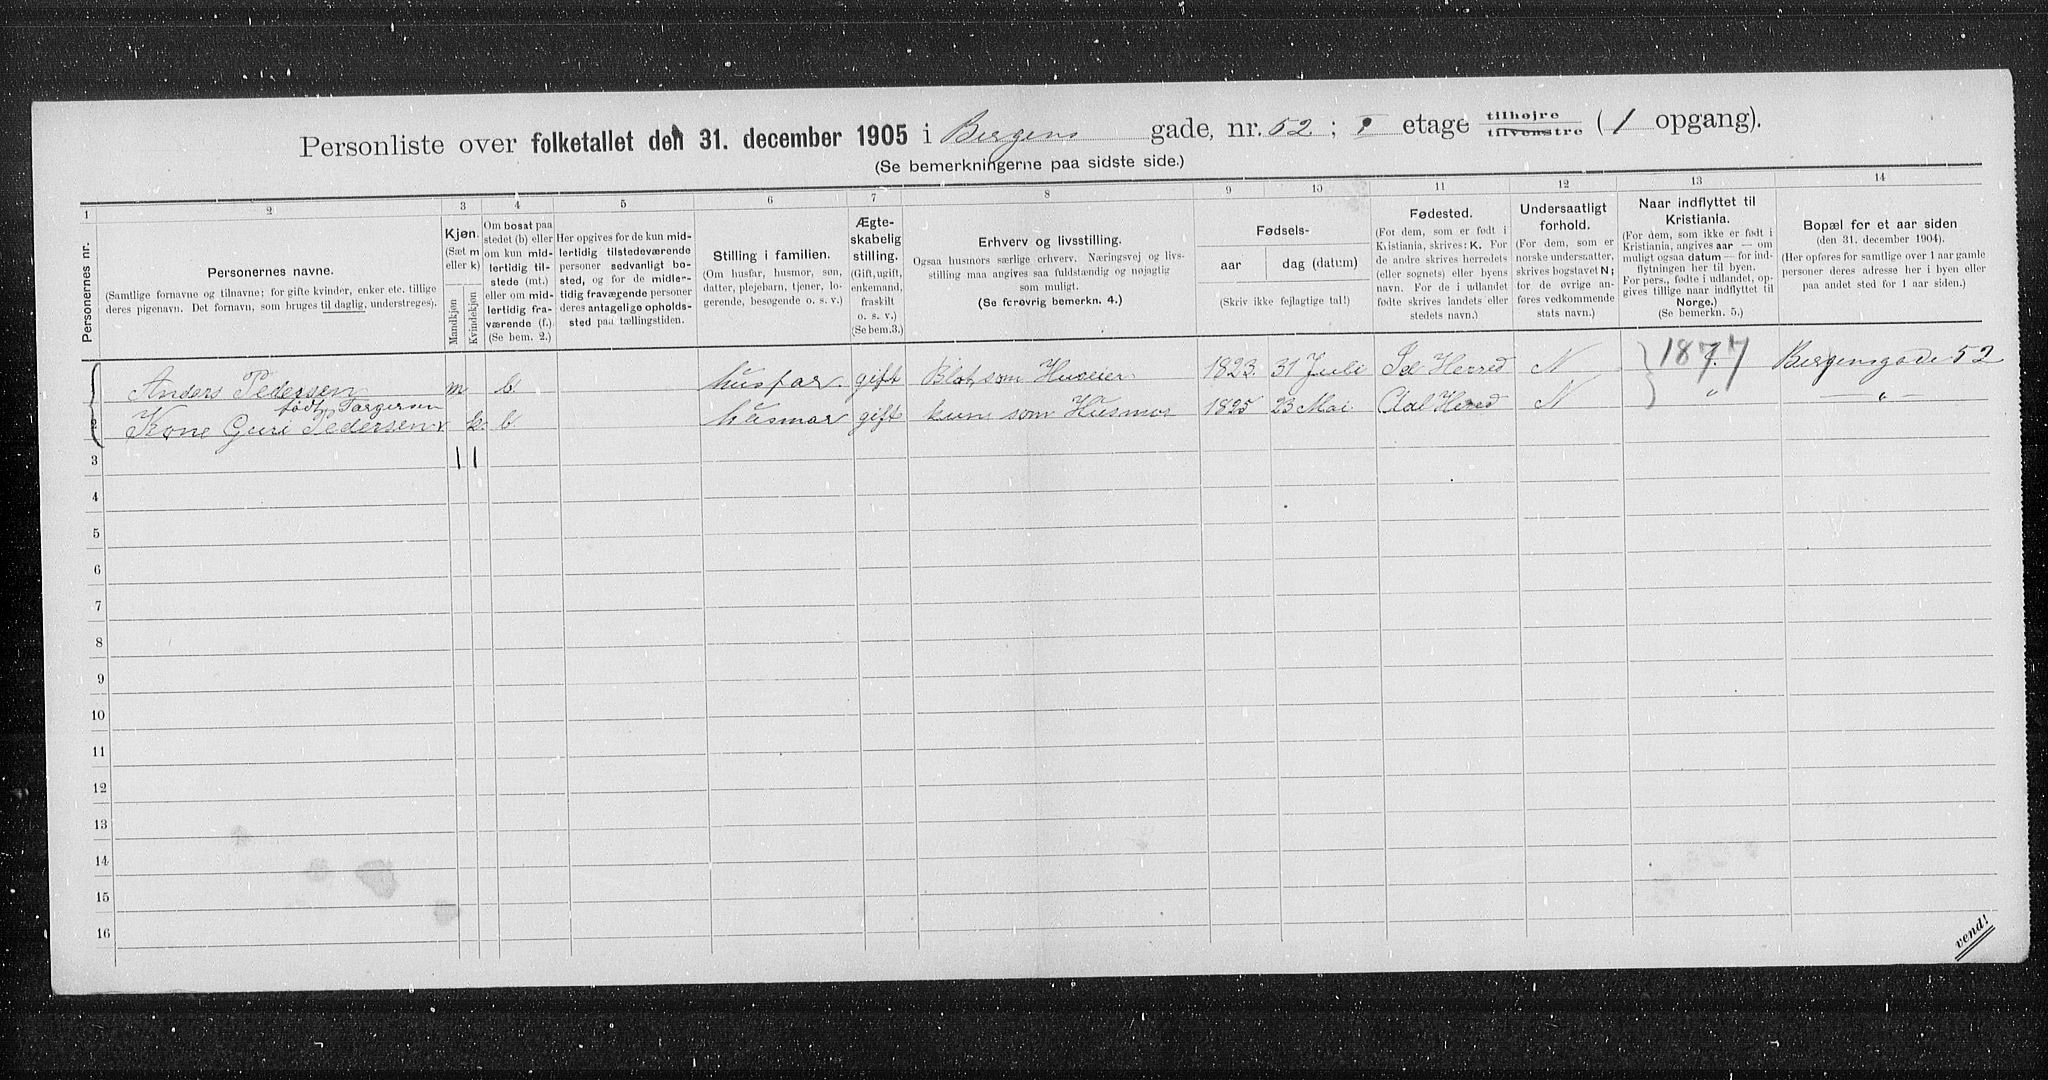 Personliste over folketallet den 31. december 1905 i Bergens gade, nr. 52 ; 1 etage tilhøjre tilvenstre ( 1 opgang).
(Se bemerkningerne paa sidste side.)
1 2 3 4 5 6 7 8 9 10 11 12 13 14
Personernes nr.
Personernes navne.
(Samtlige fornavne og tilnavne; for gifte kvinder, enker etc. tillige
deres pigenavn. Det fornavn, som bruges til daglig, understreges).
Kjøn.
(Sæt m
eller k)
Mandkjøn
Kvindekjøn
Om bosat paa
stedet (b) eller
om kun mid-
lertidig til-
stede (mt.)
eller om mid-
lertidig fra-
værende (f.)
(Se bem. 2.)
Her opgives for de kun mid-
lertidig tilstedeværende
personer sedvanlig bo-
sted, og for de midler-
tidig fraværende personer
deres antagelige opholds-
sted paa tællingstiden.
Stilling i familien.
(Om husfar, husmor, søn,
datter, plejebarn, tjener, lo-
gerende, besøgende o. s. v.)
Ægte-
skabelig
stilling.
(Gift, ugift,
enkemand,
fraskilt
o. s. v.)
(Se bem.3.)
Erhverv og livsstilling.
Ogsaa husmors særlige erhverv. Næringsvej og livs-
stilling maa angives saa fuldstændig og nøjagtig
som muligt.
(Se forøvrig bemerkn. 4.)
Fødsels-
aar
dag (datum)
(Skriv ikke fejlagtige tal!)
Fødested.
(For dem, som er født i
Kristiania, skrives: K. For
de andre skrives herredets
(eller sognets) eller byens
navn. For de i udlandet
fødte skrives landets eller
stedets navn.)
Undersaatligt
forhold.
(For dem, som er
norske undersatter,
skrives bogstavet N;
for de øvrige an-
føres vedkommende
stats navn.)
Naar indflyttet til
Kristiania.
(For dem, som ikke er født i
Kristiania, angives aar — om
muligt ogsaa datum — for ind-
flytningen her til byen.
For pers., fødte i udlandet, op-
gives tillige naar indflyttet til
Norge.)
(Se bemerkn. 5.)
Bopæl for et aar siden
(den 31. december 1904).
(Her opføres for samtlige over 1 aar gamle
personer deres adresse her i byen eller
paa andet sted for 1 aar siden.)
Anders Pedersen m b husfar. gift Blot som Huseier 1823. 31 Juli Herred N 1877 Bergensgade 52
født Torgersen
Kone Guri Pedersen k. b husmor gift kun som Husmor 1825 23 Mai Aal Hered N " — " —
3 1 1
4
5
6
7
8
9
10
11
12
13
14
15
16
vend!